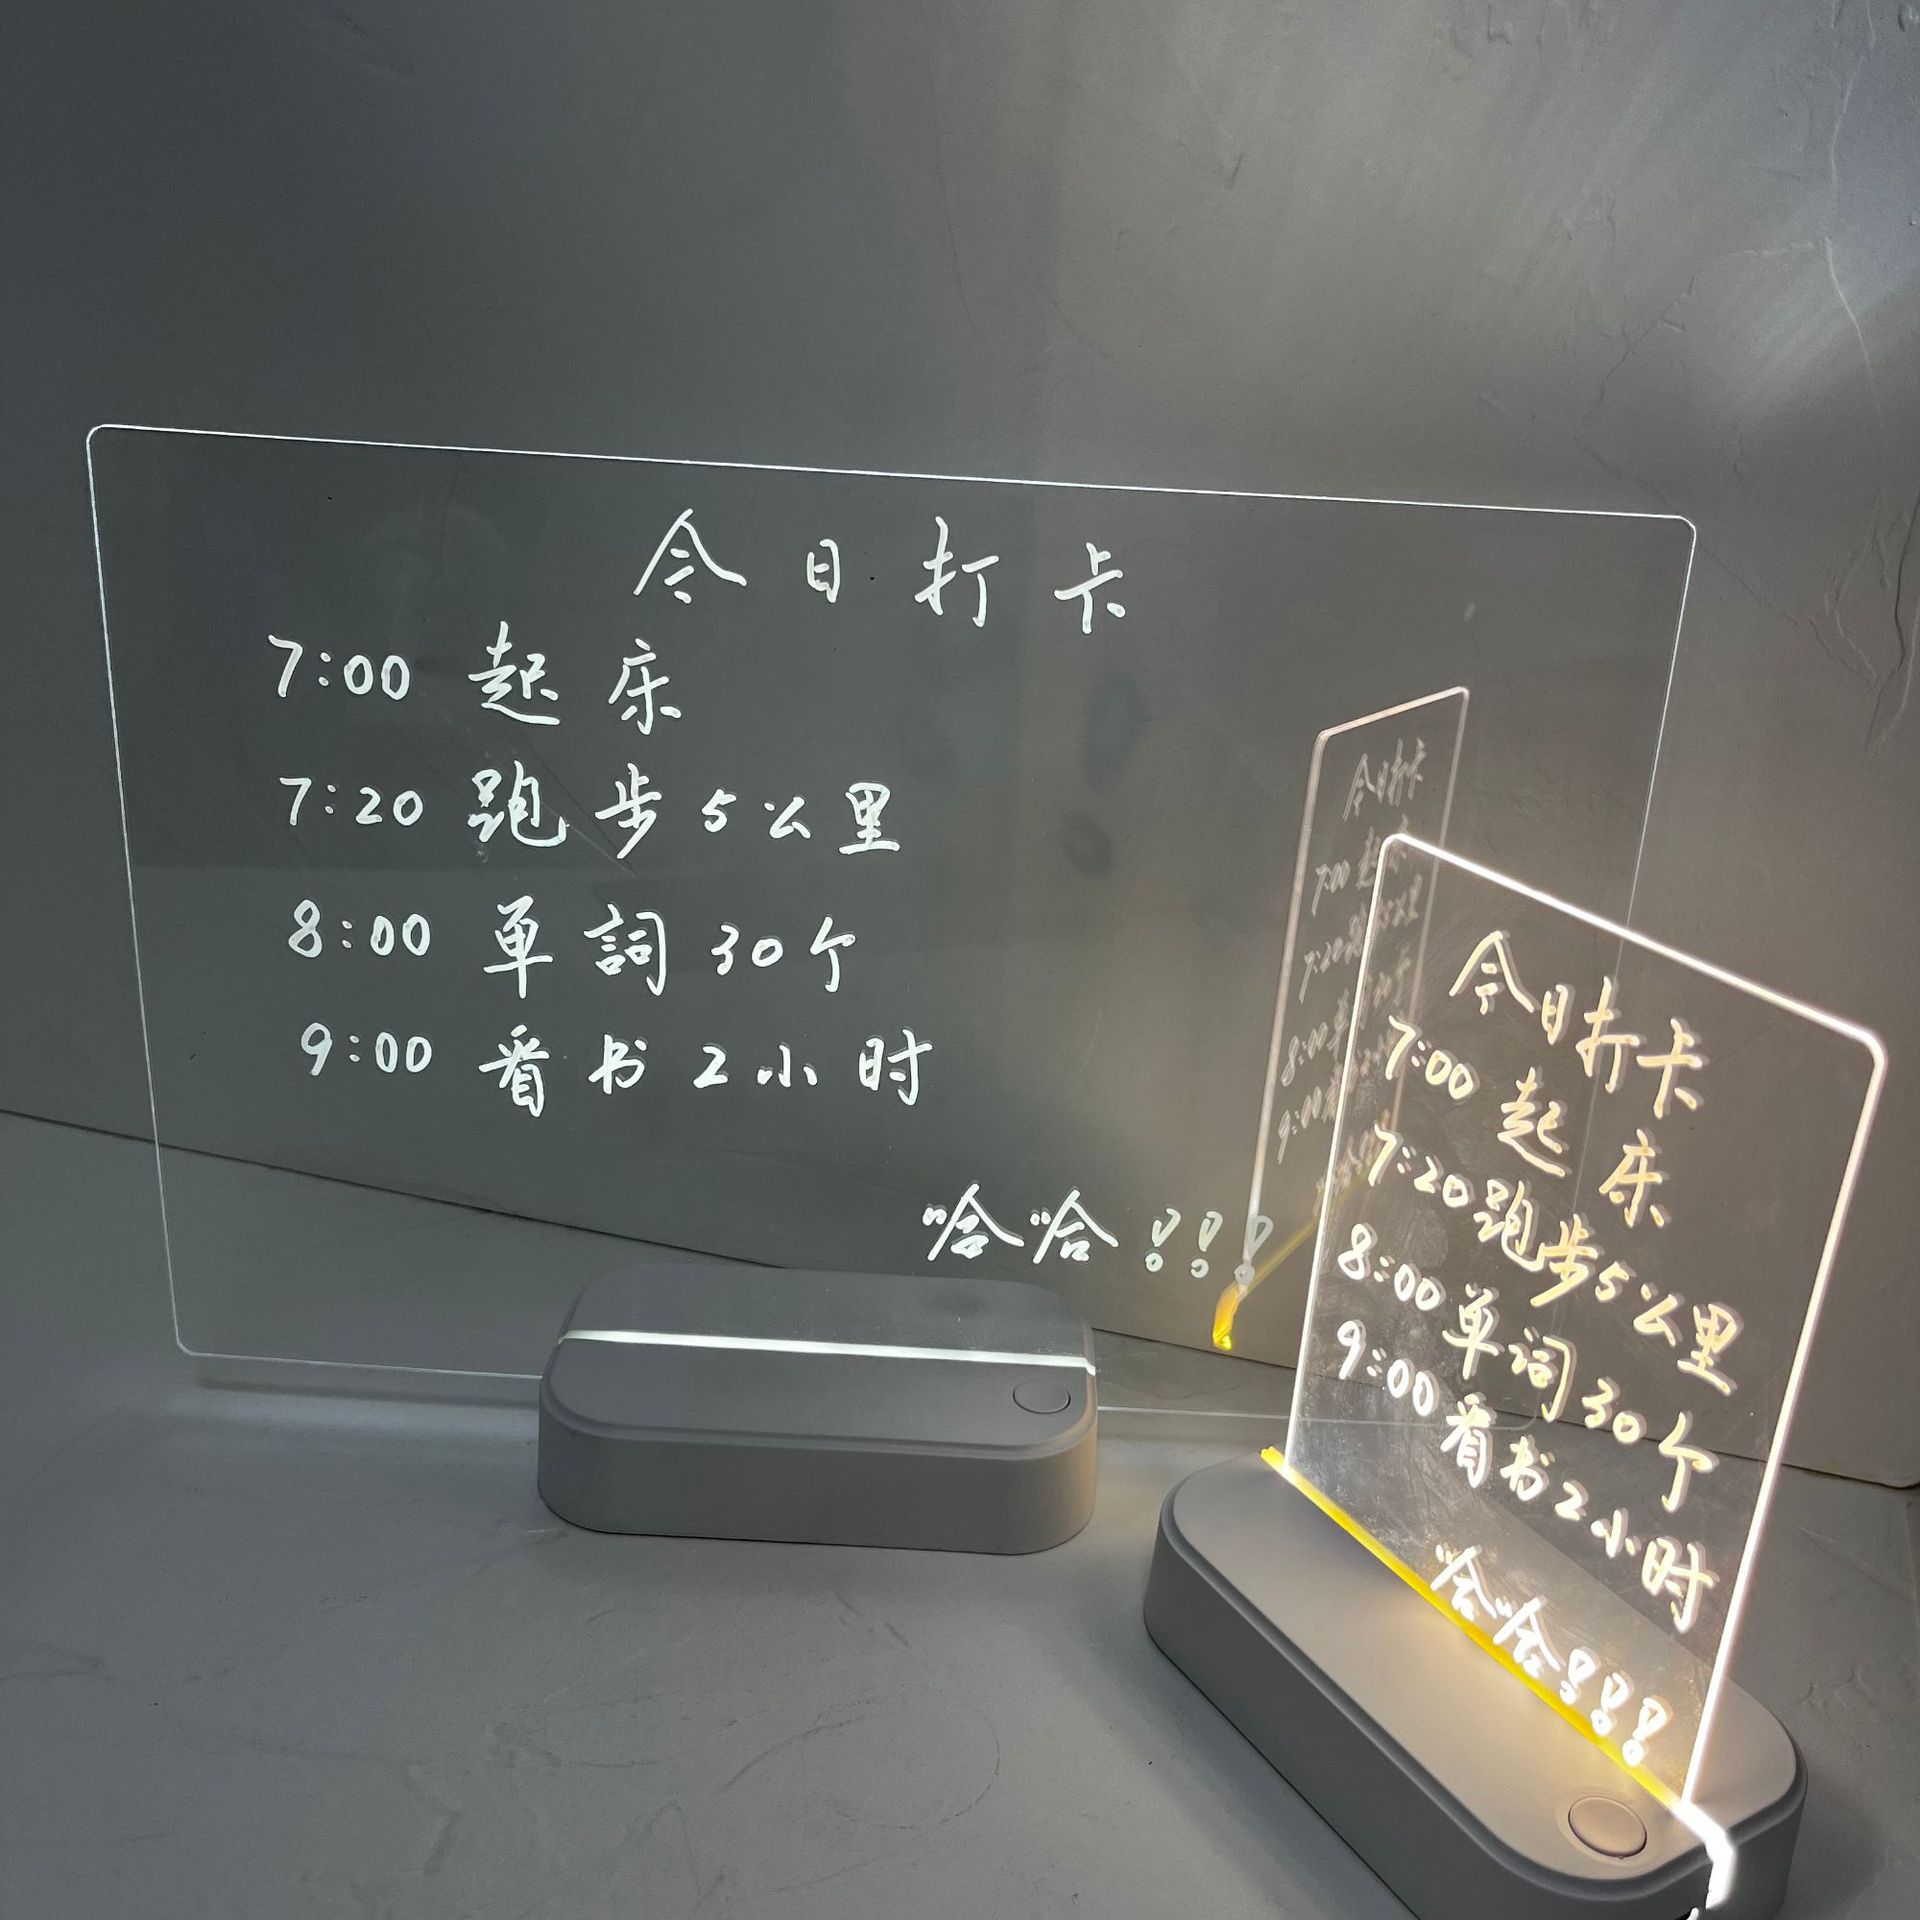 今日打卡
7:00 起床
7:20 跑步5公里
8:00 单詞 30个
9:00 看书 2小时
哈哈!!!
今日打卡
7:00 起床
7:20跑步5公里
8:00单词30个
9:00看书2小时
哈哈!!!